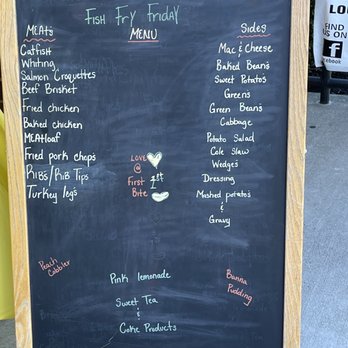 Fish Fry Friday
MEATS
MENU
Sides
Catfish
Whiting
Salmon Croquettes
Beef Brisket
Fried chicken
Baked chicken
MEATloaf
Fried pork chop's
RIB's/Rib Tips
Turkey leg's
LOVE
@
First
1st
Bite
Mac & Cheese
Baked Bean's
Sweet Potato's
Green's
Green Bean's
Cabbage
Potato Salad
Cole Slaw
Wedge's
Dressing
Mashed potato's
&
Gravy
Peach
Cobbler
Pink lemonade
Sweet Tea
&
Coke Products
Banna
Pudding
LO
FIND
US ON
f